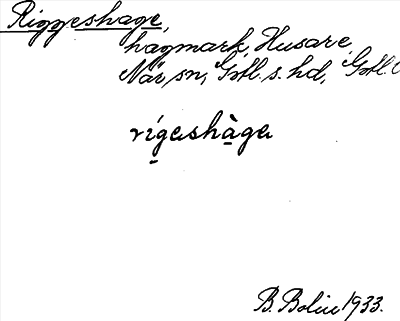 Riggeshage,
hagmark, Husarve,
När, sn, Gotl. s. hd, Gotl.
rígeshàga
B. Bolin 1933.